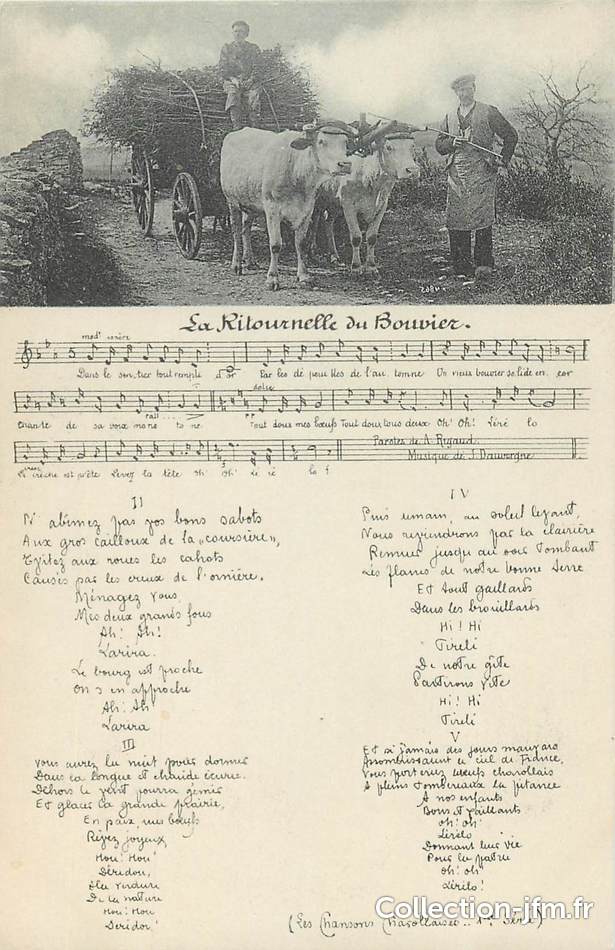 La Ritournelle du Bouvier.
Dans le sentier tout rempli d'or Par les dépouilles de l'automne Un vieux bouvier solide encor
Chante de sa voix monotone Tout doux mes bœufs Tout doux tous deux Oh! Oh! Léré lo
Paroles de A. Rigaud.
Musique de J. Dauvergne
La crèche est prête Levez la tête Oh! Oh! Lé ré lo!
II
N'abîmez pas vos bons sabots
Aux gros cailloux de la "coursière",
Evitez aux roues les cahots
Causés par les creux de l'ornière.
Ménagez vous
Mes deux grands fous
Ah! Ah!
Larira.
Le bourg est proche
On s'en approche
Ah! Ah!
Larira
III
Vous aurez la nuit pour dormir
Dans la longue et chaude écurie.
Dehors le vent pourra gémir
Et glacer la grande prairie,
En paix mes bœufs
Rêvez joyeux
Hou! Hou!
Déridou,
à la verdure
De la nature
Hou! Hou!
Déridou!
IV
Puis demain, au soleil levant,
Nous reprendrons par la clairière
Remuer jusqu'au soir tombant
Les flancs de notre bonne terre
Et tout gaillards
Dans les brouillards
Hi! Hi
Tireli
De notre gîte
Partirons vite
Hi! Hi
Tireli
V
Et si jamais des jours mauvais
Assombrissaient le ciel de France,
Vous porteriez bœufs charollais
A pleins tombereaux la pitance
A nos enfants
Bons et vaillants
Oh! Oh!
Lérélo
Donnant leur vie
Pour la patrie
Oh! Oh
Lérélo!
(Les Chansons Charollaises .. 1re Série)
Collection-jfm.fr